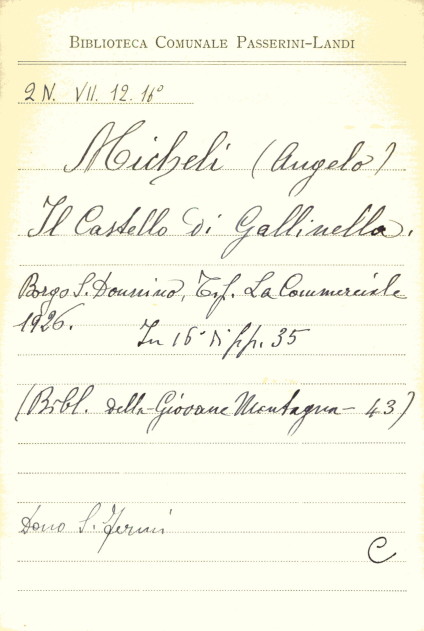 BIBLIOTECA COMUNALE PASSERINI-LANDI
2N. VII. 12. 16º
Micheli (Angelo)
Il Castello di Gallinella.
Borgo S. Donnino, Tip. La Commerciale
1926. In 16º di pp. 35
(Bibl. della Giovane Montagna - 43)
Dono S. Fermi
C